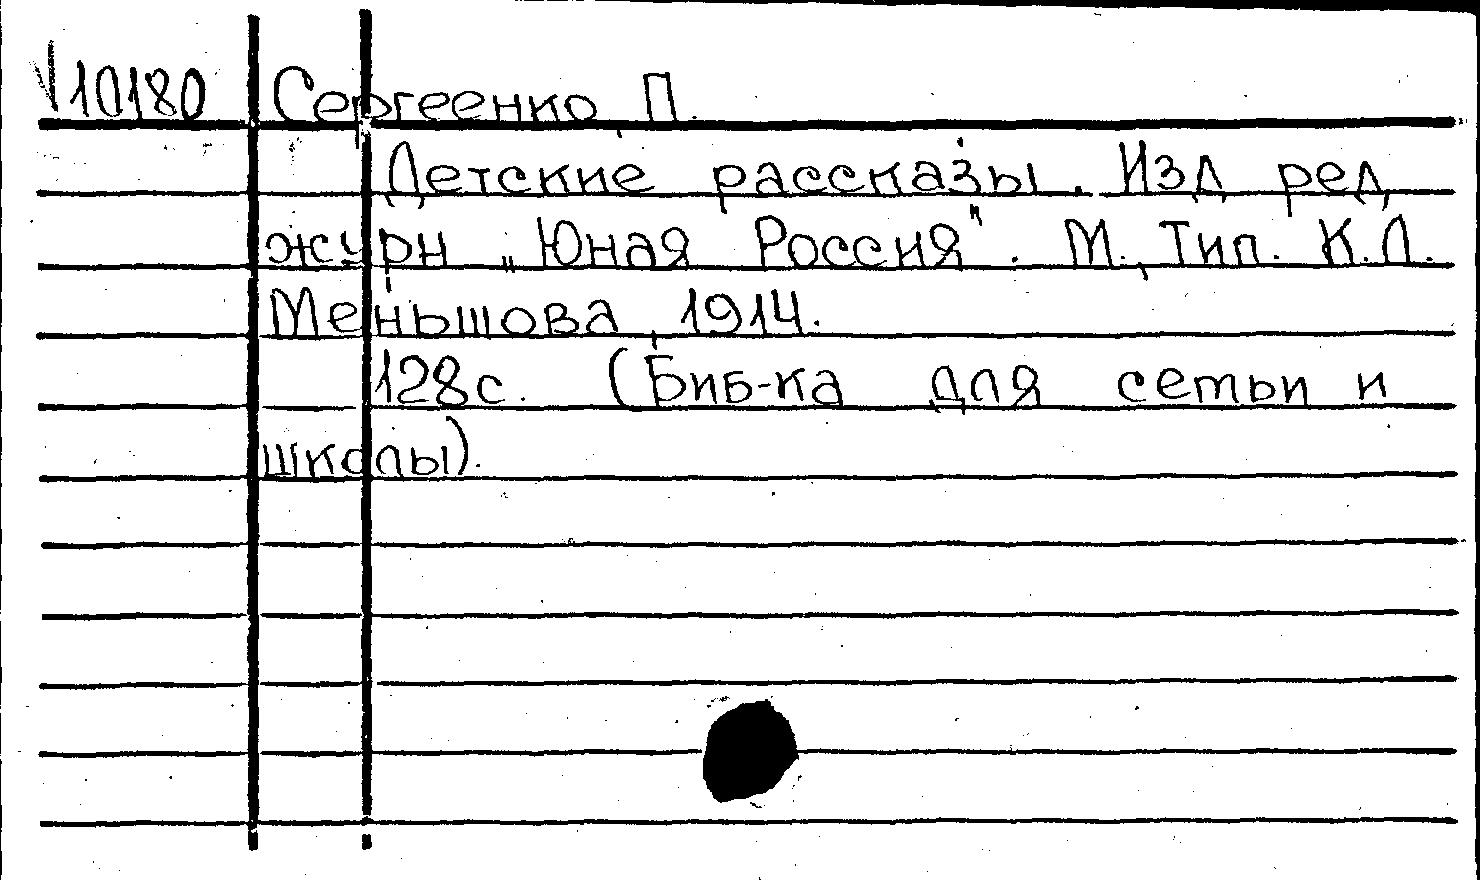 √10180 Сергеенко, П.
Детские рассказы. Изд. ред.
журн „Юная Россия". М., Тип. К.Л.
Меньшова, 1914.
128с. (Биб-ка для сетьи и
школы).